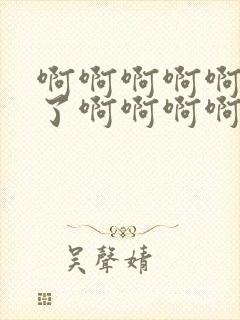 啊啊啊啊啊
了啊啊啊啊
吴聲婧